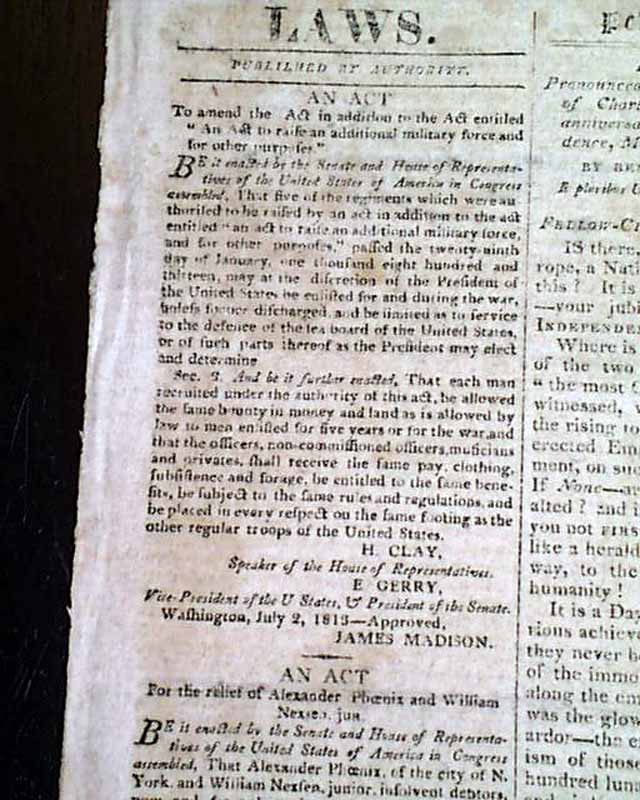 LAWS.
PUBLISHED BY AUTHORITY.
AN ACT
To amend the Act in addition to the Act entitled
" An Act to raise an additional military force and
for other purposes."
BE it enacted by the Senate and House of Representa-
tives of the United States of America in Congress
assembled, That five of the regiments which were au-
thorised to be raised by an act in addition to the act
entitled " an act to raise an additional military force,
and for other purposes," passed the twenty-ninth
day of January, one thousand eight hundred and
thirteen, may at the discretion of the President of
the United States be enlisted for and during the war,
unless sooner discharged, and be limited as to service
to the defence of the sea board of the United States,
or of such parts thereof as the President may elect
and determine
Sec. 2. And be it further enacted, That each man
recruited under the authority of this act, be allowed
the same bounty in money and land as is allowed by
law to men enlisted for five years or for the war, and
that the officers, non-commissioned officers, musicians
and privates, shall receive the same pay, clothing,
subsistence and forage, be entitled to the same bene-
fits, be subject to the same rules and regulations, and
be placed in every respect on the same footing as the
other regular troops of the United States.
H. CLAY,
Speaker of the House of Representatives.
E. GERRY,
Vice-President of the U States, & President of the Senate.
Washington, July 2, 1813—Approved,
JAMES MADISON.
AN ACT
For the relief of Alexander Phœnix and William
Nexsen, jun
BE it enacted by the Senate and House of Representa-
tives of the United States of America in Congress
assembled, That Alexander Phœnix, of the city of N.
York, and William Nexsen, junior, insolvent debtors,
Pronounced
of Char
anniversa
dence, M
E pluribus U
FELLOW-CI
IS there,
rope, a Nati
this ? It is
—your jubi
INDEPENDE
Where is
of the two
" the most
witnessed,
the rising to
erected Em
ment, on su
If None—a
alted ? and i
you not FIRS
like a herald
way, to the
humanity !
It is a Day
rious achieve
they never be
of the immo
along the em
was the glow
ardor—the e
ism of those
hundred lum